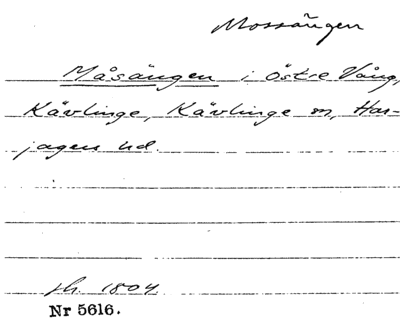 Mossängen
Måsängen i Östre Vång,
Kävlinge, Kävlinge sn, Har-
jagers hd.
sk. 1804.
Nr 5616.